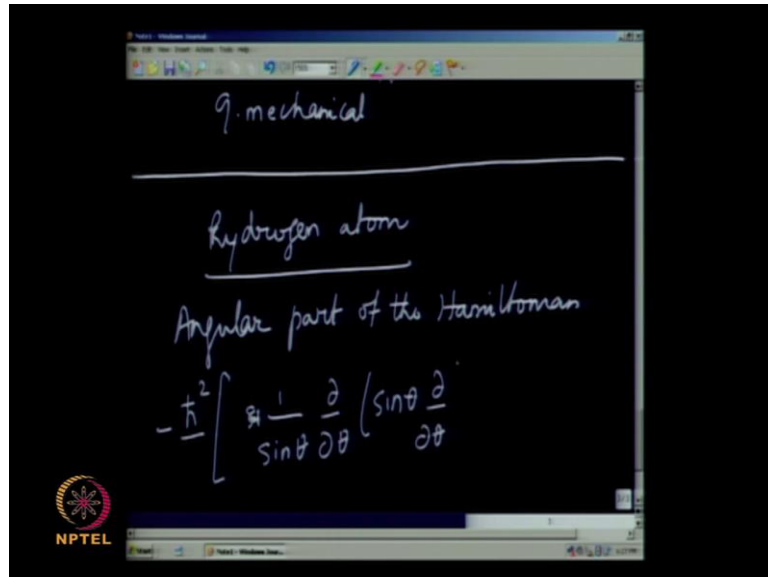 Note1 - Windows Journal
File Edit View Insert Actions Tools Help
q. mechanical
Hydrogen atom
Angular part of the Hamiltonian
-ħ² [ 1/sinθ ∂/∂θ (sinθ ∂/∂θ
3/3
NPTEL
Start
Note1 - Windows Jour...